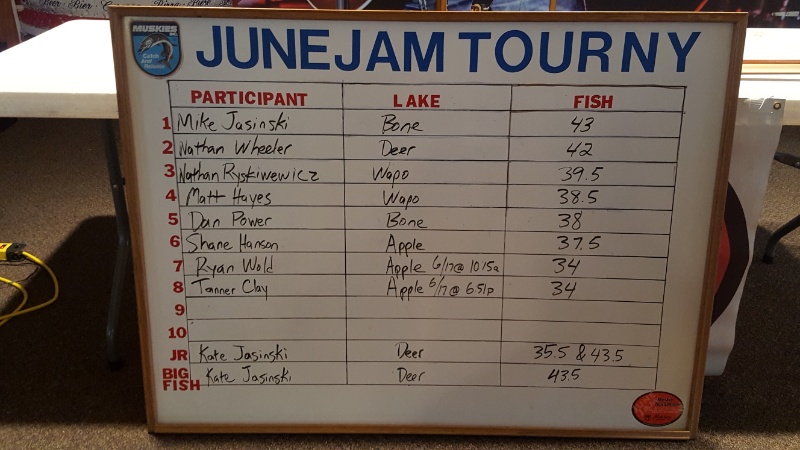 MUSKIES INC.
Catch And Release
JUNEJAM TOURNY
PARTICIPANT LAKE FISH
1 Mike Jasinski Bone 43
2 Nathan Wheeler Deer 42
3 Nathan Ryskiwewicz Wapo 39.5
4 Matt Hayes Wapo 38.5
5 Dan Power Bone 38
6 Shane Hanson Apple 37.5
7 Ryan Wold Apple 6/17 @ 1015a 34
8 Tanner Clay Apple 6/17 @ 651p 34
9
10
JR Kate Jasinski Deer 35.5 & 43.5
BIG FISH Kate Jasinski Deer 43.5